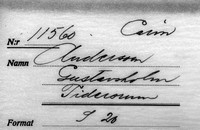 N:r 11560.
Namn Andersson
Gustavsholm
Tiderum
Format